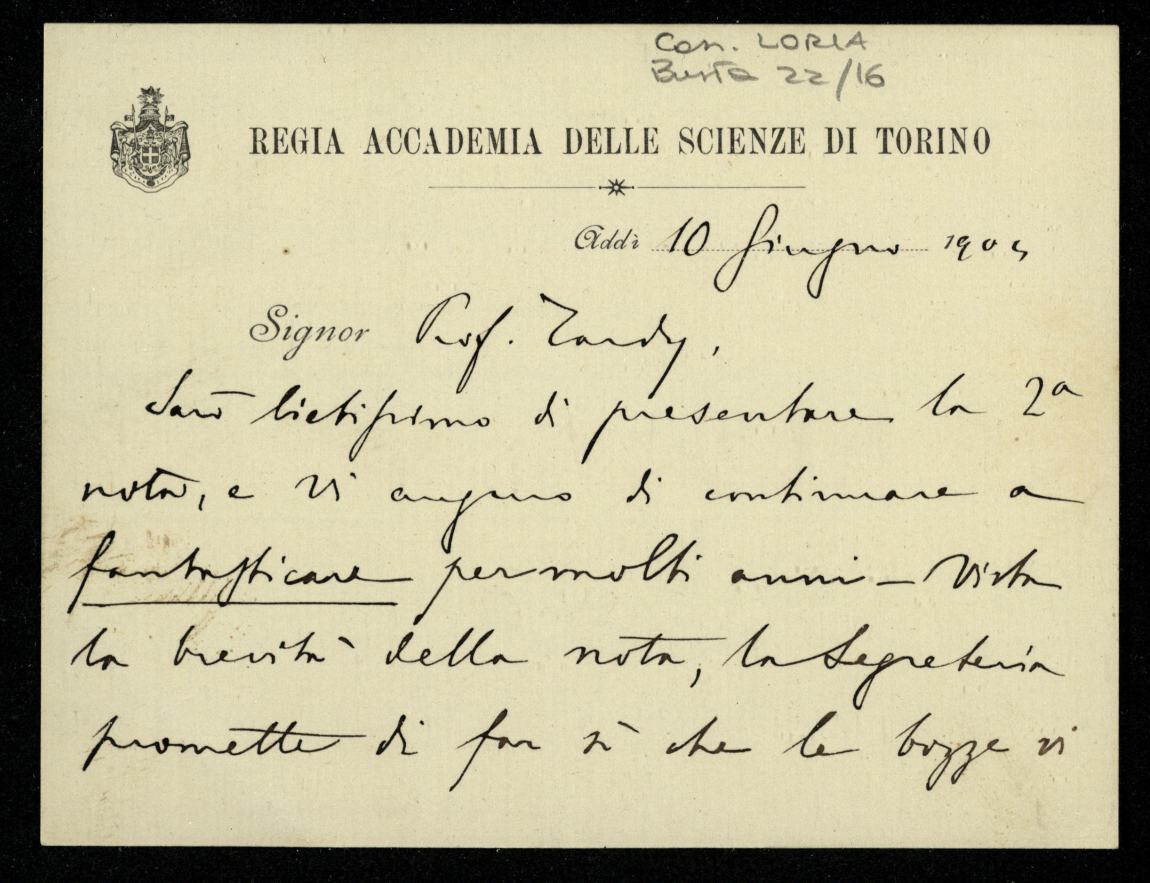 Con. LORIA
Busta 22/16
REGIA ACCADEMIA DELLE SCIENZE DI TORINO
Addì 10 Giugno 1904
Signor Prof. Tardy,
Sarò lietissimo di presentare la 2ª
nota, e vi auguro di continuare a
fantasticare per molti anni – Vista
la brevità della nota, la Segreteria
promette di far sì che le bozze vi